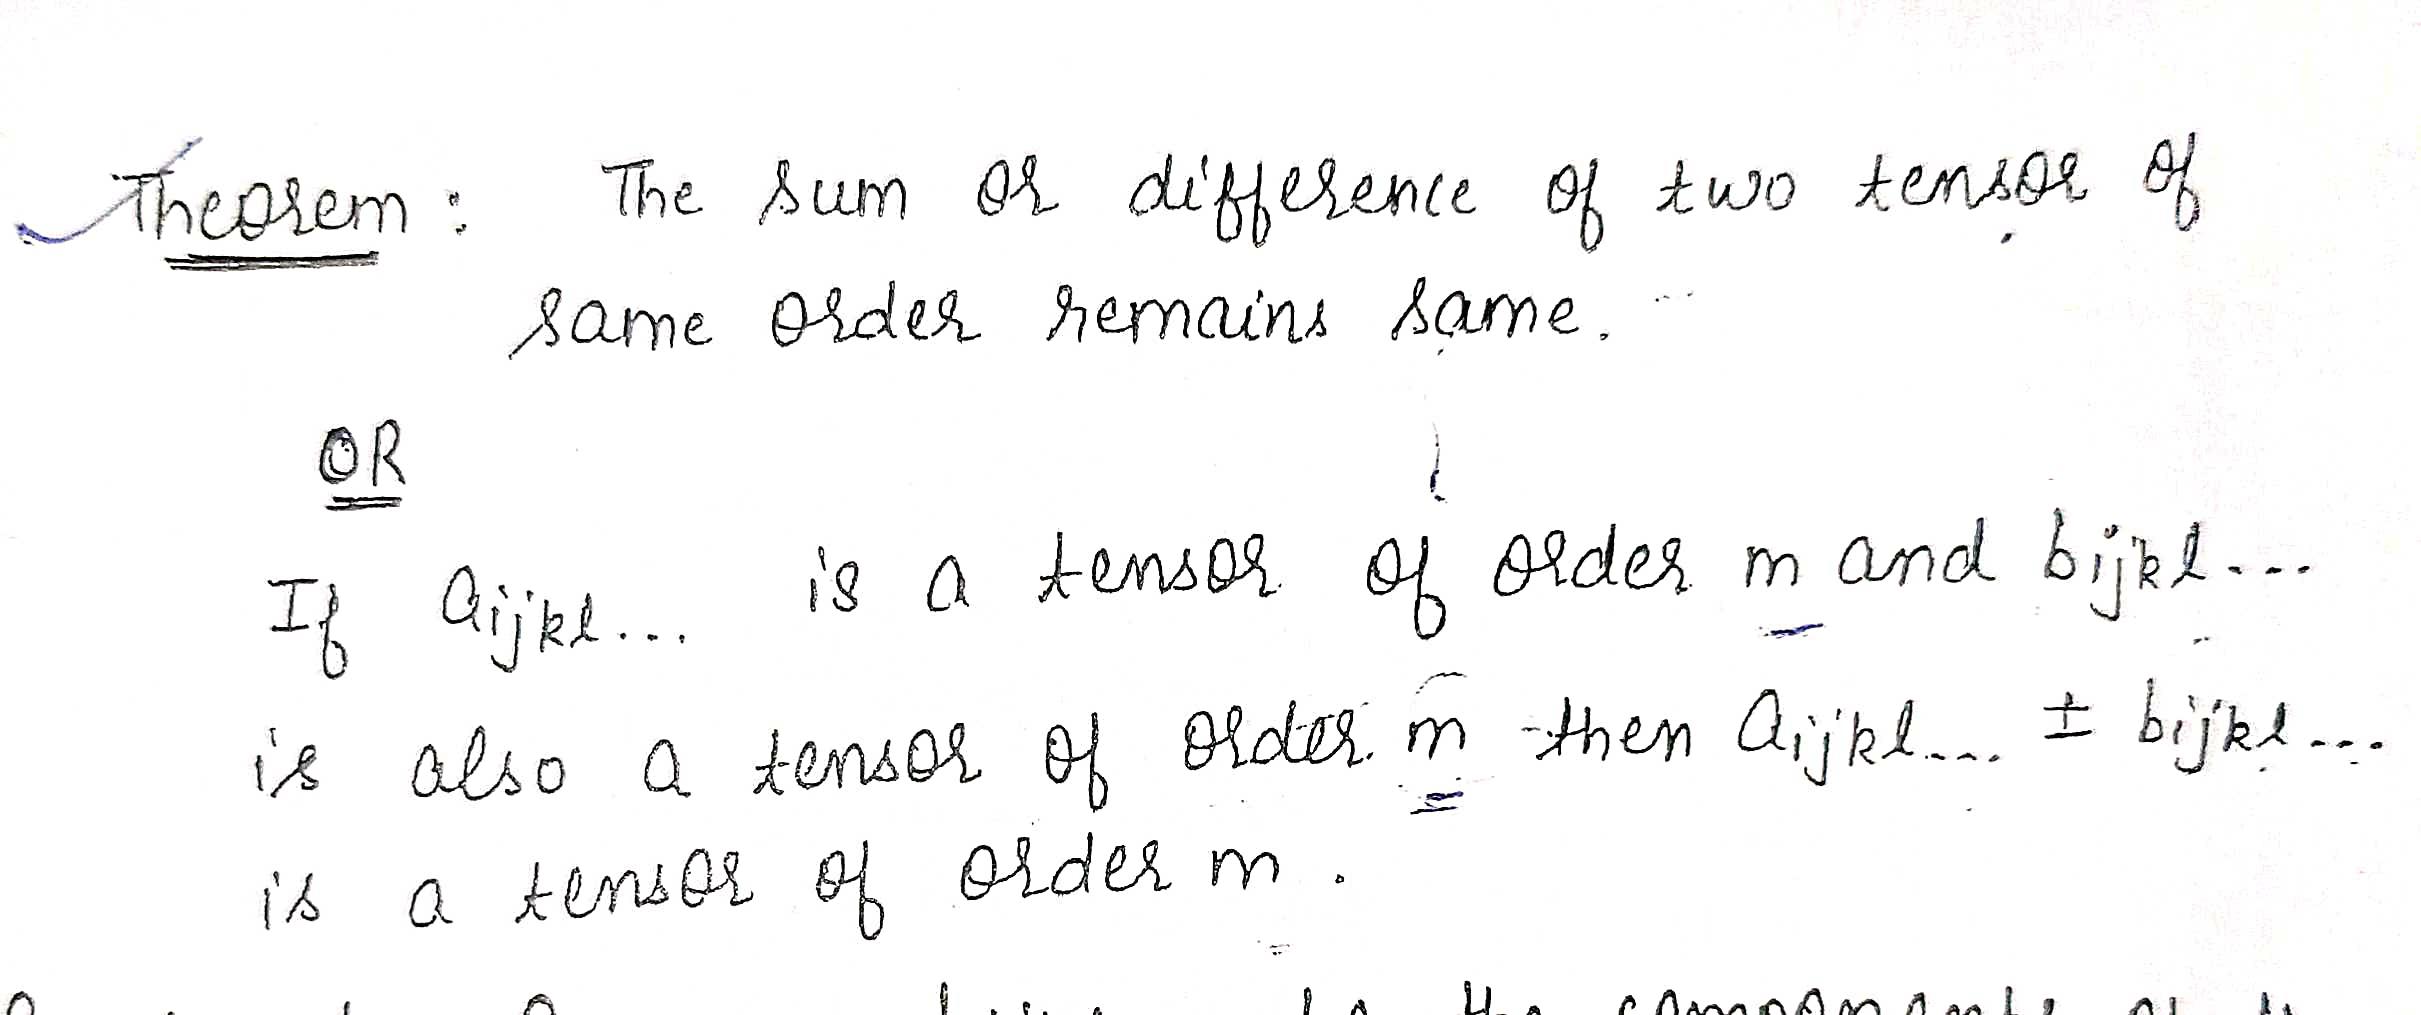 Theorem : The sum or difference of two tensor of
same order remains same.
OR
If aijkl... is a tensor of order m and bijkl...
is also a tensor of order m then aijkl... ± bijkl...
is a tensor of order m .
the components